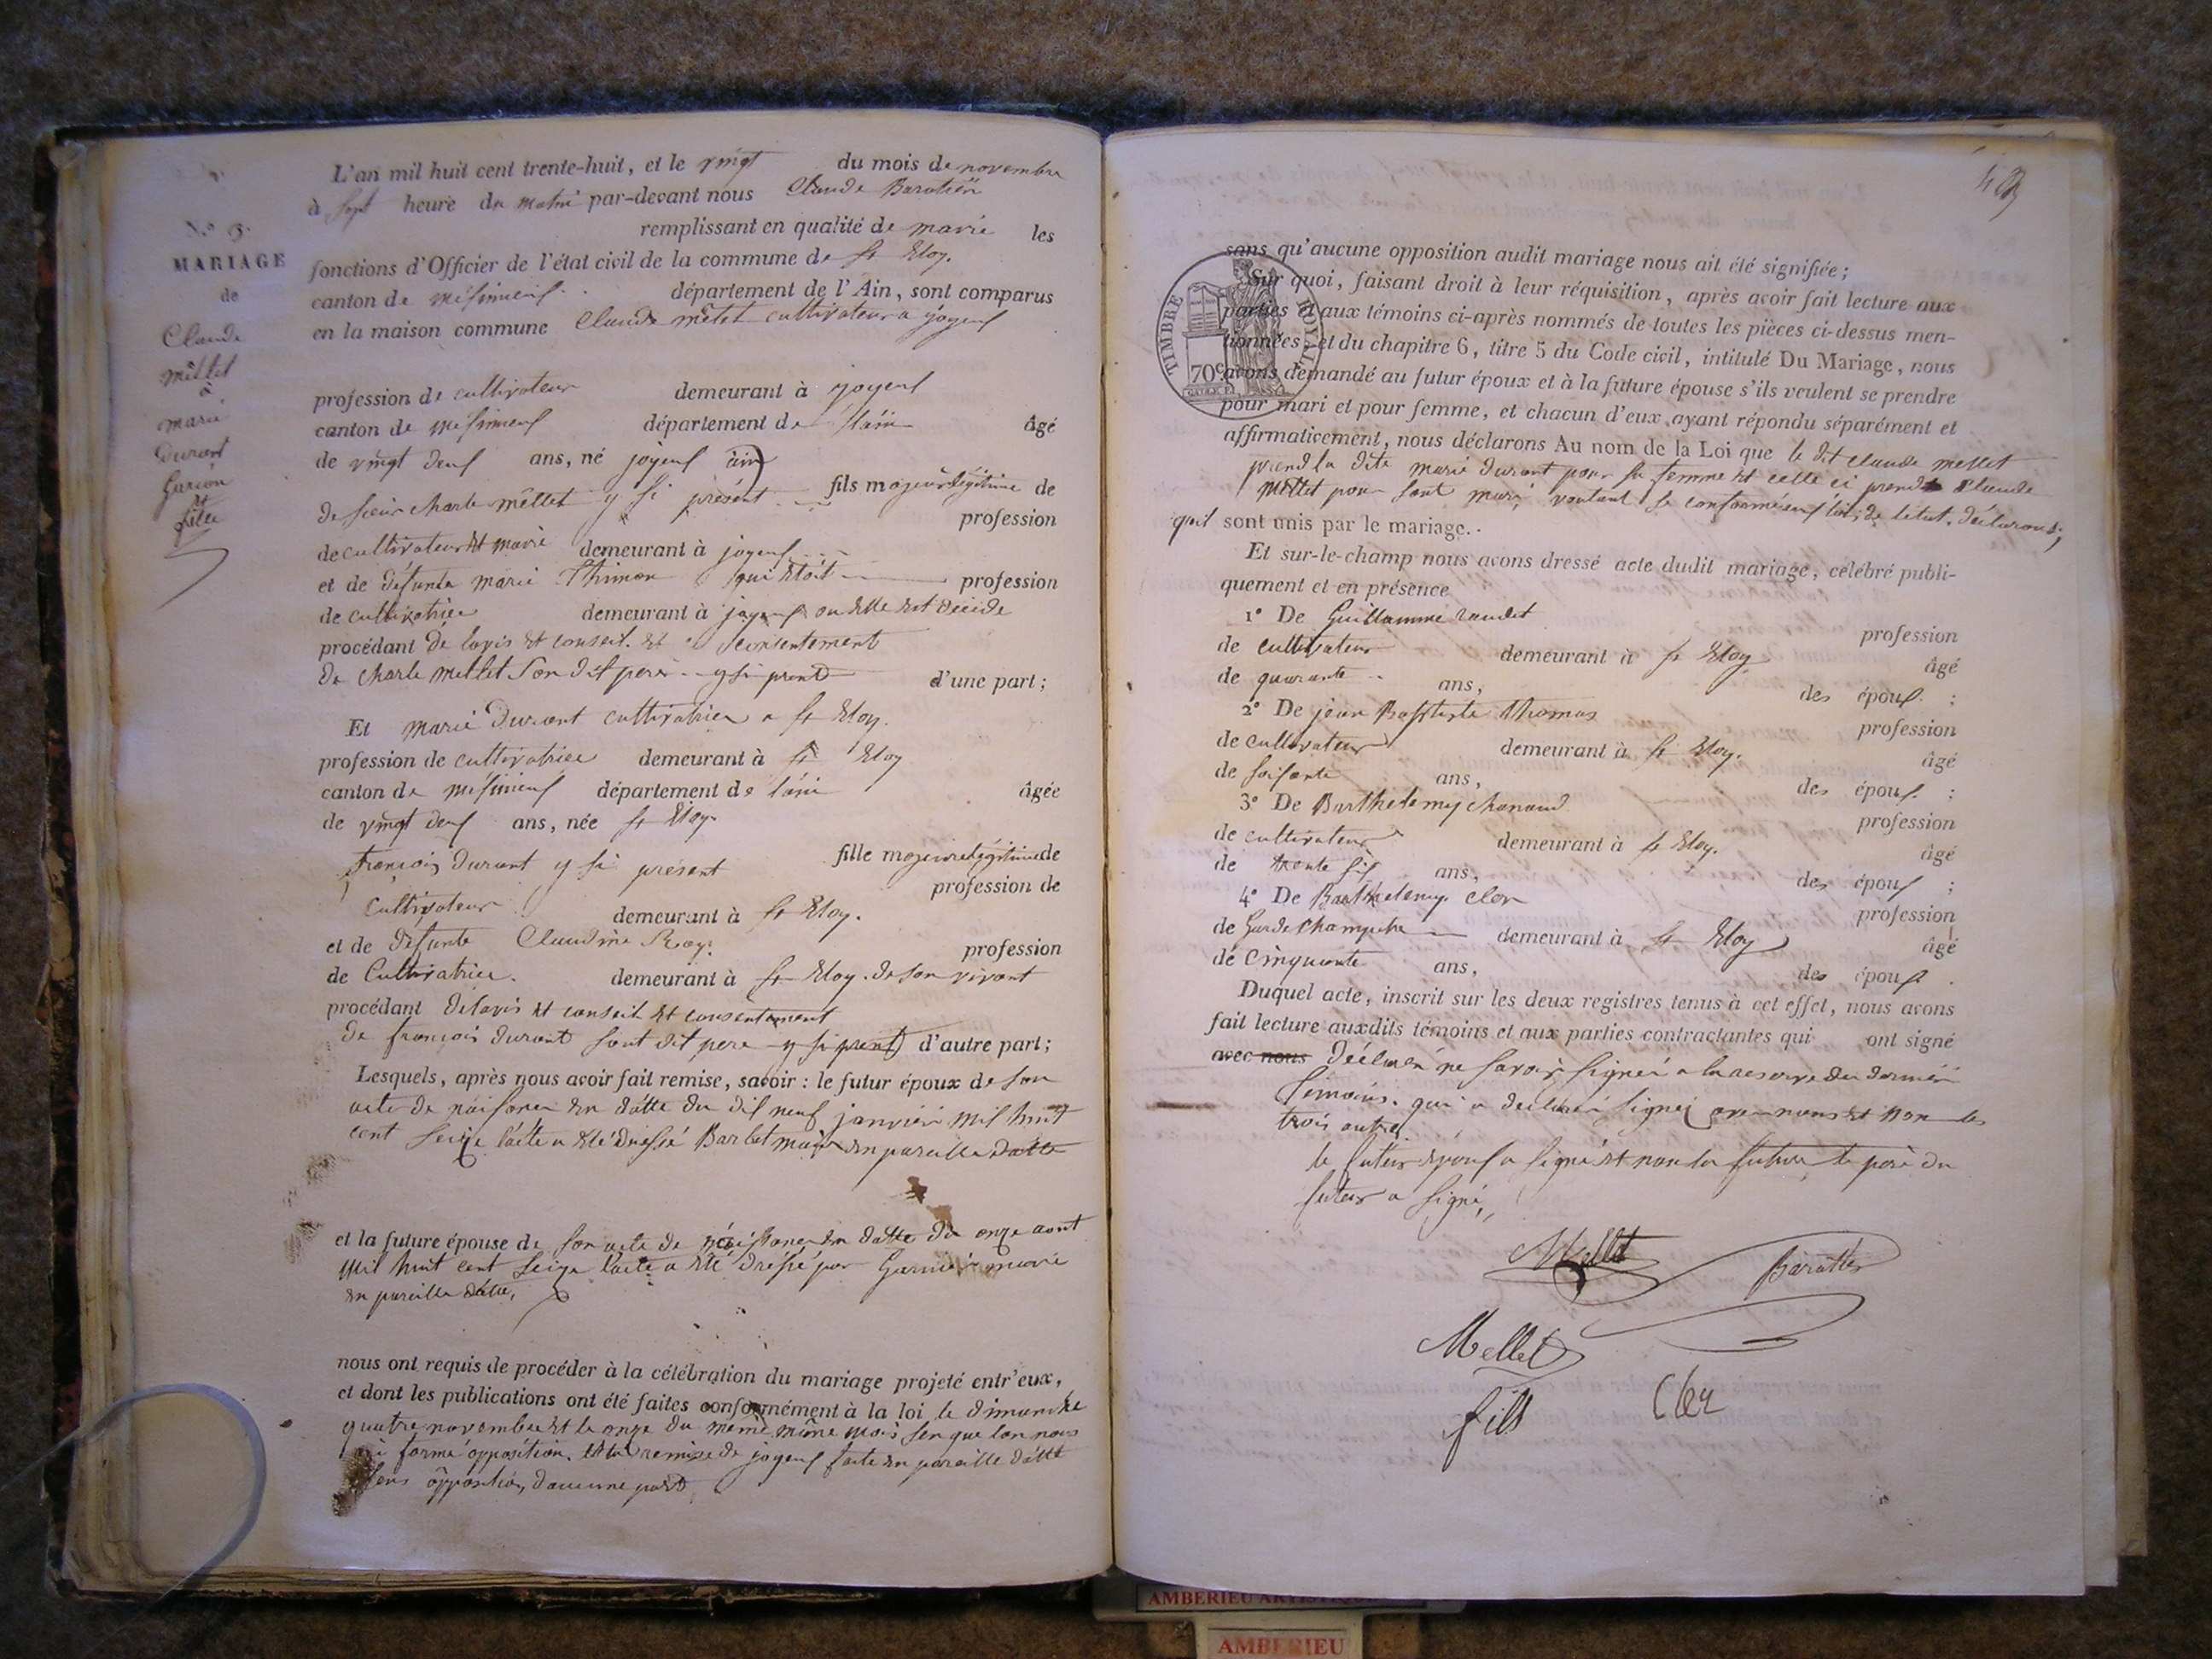 L'an mil huit cent trente-huit, et le vingt du mois de novembre
à sept heure du matin par-devant nous Claude
remplissant en qualité de mairie les
fonctions d'Officier de l'état civil de la commune de St Eloy.
canton de département de l'Ain, sont comparus
en la maison commune Claude mêlet cultivateur a joyeuf
N.º
MARIAGE
de
Claude
mêllet
à
marie
Durant
Garçon
et
fille
profession de cultivateur demeurant à joyeuf
canton de département de l'ain âgé
de vingt deuf ans, né joyeuf ain
fils majeur légitime de
de sieur charle mêllet y si présent
profession
de cultivateur et marié demeurant à joyeuf
et de défunte marie Thimon qui étoit profession
de cultivatrice demeurant à joyeuf ou elle est décidé
procédant de lavis et conseil. et consentement
de charle mellet son dit perè y si prent d'une part;
Et marie Durant cultivatrice a St Eloy.
profession de cultivatrice demeurant à St Eloy
canton de département de lain âgée
de vingt deuf ans, née St Eloy
fille majeure légitime de
françois Durant y si présent
profession de
Cultivateur demeurant à St Eloy.
et de défunte Claudine Roy. profession
de Cultivatrice. demeurant à St Eloy. de son vivant
procédant de lavis et conseil et consentement
de françois durant sont dit pere y si prent d'autre part;
Lesquels, après nous avoir fait remise, savoir: le futur époux de son
acte de naisance en datte du dif neuf janvier mil huit
cent seize lacte a été dressé Barlet maire en pareille datte
et la future épouse de son acte de naissance en datte du onze aout
mil huit cent seize lacte a été dressé par Garnier mairè
en pareille datte,
nous ont requis de procéder à la célébration du mariage projeté entr'eux,
et dont les publications ont été faites conformément à la loi le dimanche
quatre novembre et le onze du même même mois sen que lon nous
formé opposition. et la remise de joyeuf faite en pareille datte
sens opposition daucune part
sans qu'aucune opposition audit mariage nous ait été signifiée;
TIMBRE ROYAL
70 c
Sur quoi, faisant droit à leur réquisition, après avoir fait lecture aux
parties et aux témoins ci-après nommés de toutes les pièces ci-dessus men-
tionnées, et du chapitre 6, titre 5 du Code civil, intitulé Du Mariage, nous
avons demandé au futur époux et à la future épouse s'ils veulent se prendre
pour mari et pour femme, et chacun d'eux ayant répondu séparément et
affirmativement, nous déclarons Au nom de la Loi que le dit claude mellet
prend la dite marie durant pour sa femme et celle ci prend Claude
mellet pour sont mari, voulant se conformé letat, déclarons,
qu'il sont unis par le mariage.
Et sur-le-champ nous avons dressé acte dudit mariage, célébré publi-
quement et en présence
1º De Guillaumme
profession
de cultivateur demeurant à St Eloy
âgé
de quarante ans,
des épouf. ;
2º De jean Baptiste Thomas
profession
de cultivateur demeurant à St Eloy.
âgé
de soifante ans,
des épouf. ;
3º De Barthelemy chanaud
profession
de cultivateur demeurant à St Eloy.
âgé
de trente sif ans,
des épouf ;
4º De Barthelemy
profession
de Garde Champetre demeurant à St Eloy
âgé
de cinquante ans,
des épouf .
Duquel acte, inscrit sur les deux registres tenus à cet effet, nous avons
fait lecture auxdits témoins et aux parties contractantes qui ont signé
avec nous déclaré ne savoir signer a la reserve du dernier
Témoins. qui a déclaré signer avec nous et non les
trois autre.
le futur épouf a signé et non la future le perè du
futur a signé,
Mellet
Mellet
fils
AMBERIEU
AMBERIEU